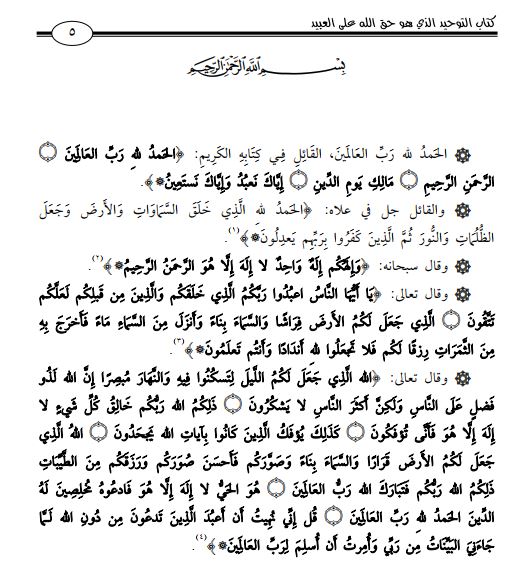 كتاب التوحيد الذي هو حق الله على العبيد
٥
بِسْمِ اللَّهِ الرَّحْمَنِ الرَّحِيمِ
۞ الحَمدُ لله رَبِّ العَالَمِينَ، القَائِلِ فِي كِتَابِهِ الكَرِيمِ: ﴿الحَمدُ للهِ رَبِّ العَالَمِينَ ۝
الرَّحمَنِ الرَّحِيمِ ۝ مَالِكِ يَومِ الدِّينِ ۝ إِيَّاكَ نَعبُدُ وَإِيَّاكَ نَستَعِينُ۞﴾.
۞ والقائل جل في علاه: ﴿الحَمدُ للهِ الَّذِي خَلَقَ السَّمَاوَاتِ وَالأَرضَ وَجَعَلَ
الظُّلُمَاتِ وَالنُّورَ ثُمَّ الَّذِينَ كَفَرُوا بِرَبِّهِم يَعدِلُونَ۞﴾(١).
۞ وقال سبحانه: ﴿وَإِلَهُكُم إِلَهٌ وَاحِدٌ لا إِلَهَ إِلَّا هُوَ الرَّحمَنُ الرَّحِيمُ۞﴾(٢).
۞ وقال تعالى: ﴿يَا أَيُّهَا النَّاسُ اعبُدُوا رَبَّكُمُ الَّذِي خَلَقَكُم وَالَّذِينَ مِن قَبلِكُم لَعَلَّكُم
تَتَّقُونَ ۝ الَّذِي جَعَلَ لَكُمُ الأَرضَ فِرَاشًا وَالسَّمَاءَ بِنَاءً وَأَنزَلَ مِنَ السَّمَاءِ مَاءً فَأَخرَجَ بِهِ
مِنَ الثَّمَرَاتِ رِزقًا لَكُم فَلا تَجعَلُوا للهِ أَندَادًا وَأَنتُم تَعلَمُونَ۞﴾(٣).
۞ وقال تعالى: ﴿الله الَّذِي جَعَلَ لَكُمُ اللَّيلَ لِتَسكُنُوا فِيهِ وَالنَّهَارَ مُبصِرًا إِنَّ الله لَذُو
فَضلٍ عَلَى النَّاسِ وَلَكِنَّ أَكثَرَ النَّاسِ لا يَشكُرُونَ ۝ ذَلِكُمُ الله رَبُّكُم خَالِقُ كُلِّ شَيءٍ لا
إِلَهَ إِلَّا هُوَ فَأَنَّى تُؤفَكُونَ ۝ كَذَلِكَ يُؤفَكُ الَّذِينَ كَانُوا بِآيَاتِ الله يَجحَدُونَ ۝ اللهُ الَّذِي
جَعَلَ لَكُمُ الأَرضَ قَرَارًا وَالسَّمَاءَ بِنَاءً وَصَوَّرَكُم فَأَحسَنَ صُوَرَكُم وَرَزَقَكُم مِنَ الطَّيِّبَاتِ
ذَلِكُمُ الله رَبُّكُم فَتَبَارَكَ الله رَبُّ العَالَمِينَ ۝ هُوَ الحَيُّ لا إِلَهَ إِلَّا هُوَ فَادعُوهُ مُخلِصِينَ لَهُ
الدِّينَ الحَمدُ لله رَبِّ العَالَمِينَ ۝ قُل إِنِّي نُهِيتُ أَن أَعبُدَ الَّذِينَ تَدعُونَ مِن دُونِ الله لَمَّا
جَاءَنِيَ البَيِّنَاتُ مِن رَبِّي وَأُمِرتُ أَن أُسلِمَ لِرَبِّ العَالَمِينَ۞﴾(٤).